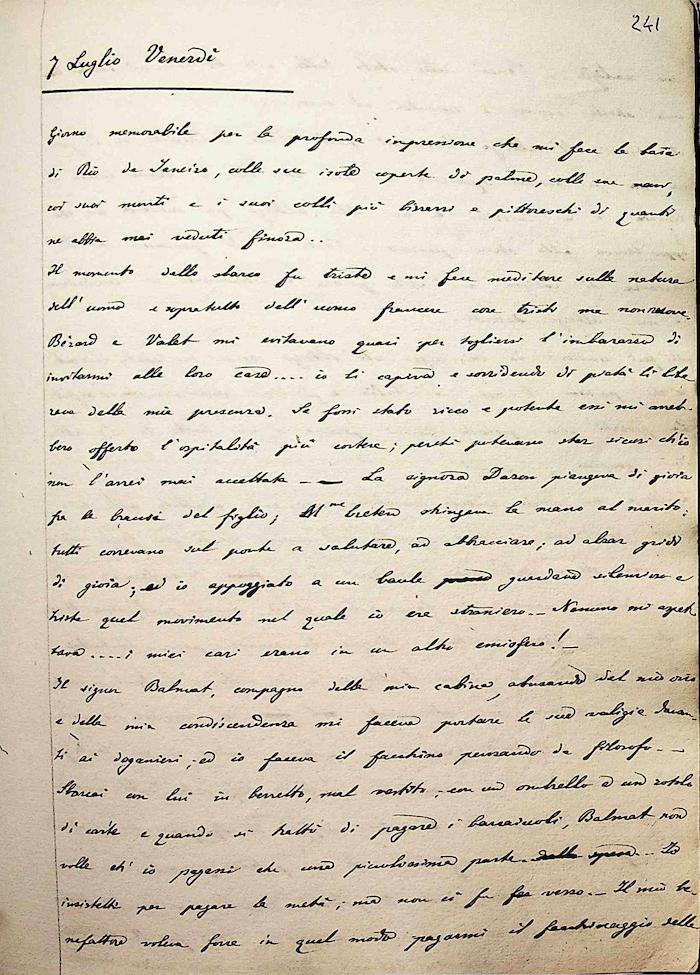 241
7 Luglio Venerdì
Giorno memorabile per la profonda impressione che mi fece la baia
di Rio de Janeiro, colle sue isole coperte di palme, colle sue navi,
coi suoi monti e i suoi colli più bizzarri e pittoreschi di quanti
ne abbia mai veduti finora..
Il momento dello sbarco fu triste e mi fece meditare sulle nature
dell'uomo e sopratutto dell'uomo francese cose tristi ma non nuove.
Bérard e Valet mi evitavano quasi per togliersi l'imbarazzo di
invitarmi alle loro case.... io li capiva e sorridendo di pietà li libe
rava della mia presenza. Se fossi stato ricco e potente essi mi avreb
bero offerto l'ospitalità più cortese; perchè potevano star sicuri ch'io
non l'avrei mai accettata — — La signora Dason piangeva di gioia
fra le braccia del figlio; M.me Breton stringeva la mano al marito;
tutti correvano sul ponte a salutare, ad abbracciare; ad alzar gridi
di gioia; ed io appoggiato a un baule guardava silenzioso e
triste quel movimento nel quale io era straniero — Nessuno mi aspet
tava.....i miei cari erano in un altro emisfero! —
Il signor Balmat, compagno della mia cabina, abusando del mio
e della mia condiscendenza mi faceva portare le sue valigie davan
ti ai doganieri; ed io faceva il facchino pensando da filosofo --
Sbarcai con lui in berretto, mal vestito; con un ombrello e un rotolo
di carte e quando si trattò di pagare i barcaiuoli, Balmat non
volle ch'io pagassi che una piccolissima parte della spesa -- Io
insistetti per pagare la metà; ma non ci fu verso — Il mio be
nefattore voleva forse in quel modo pagarmi il facchinaggio delle